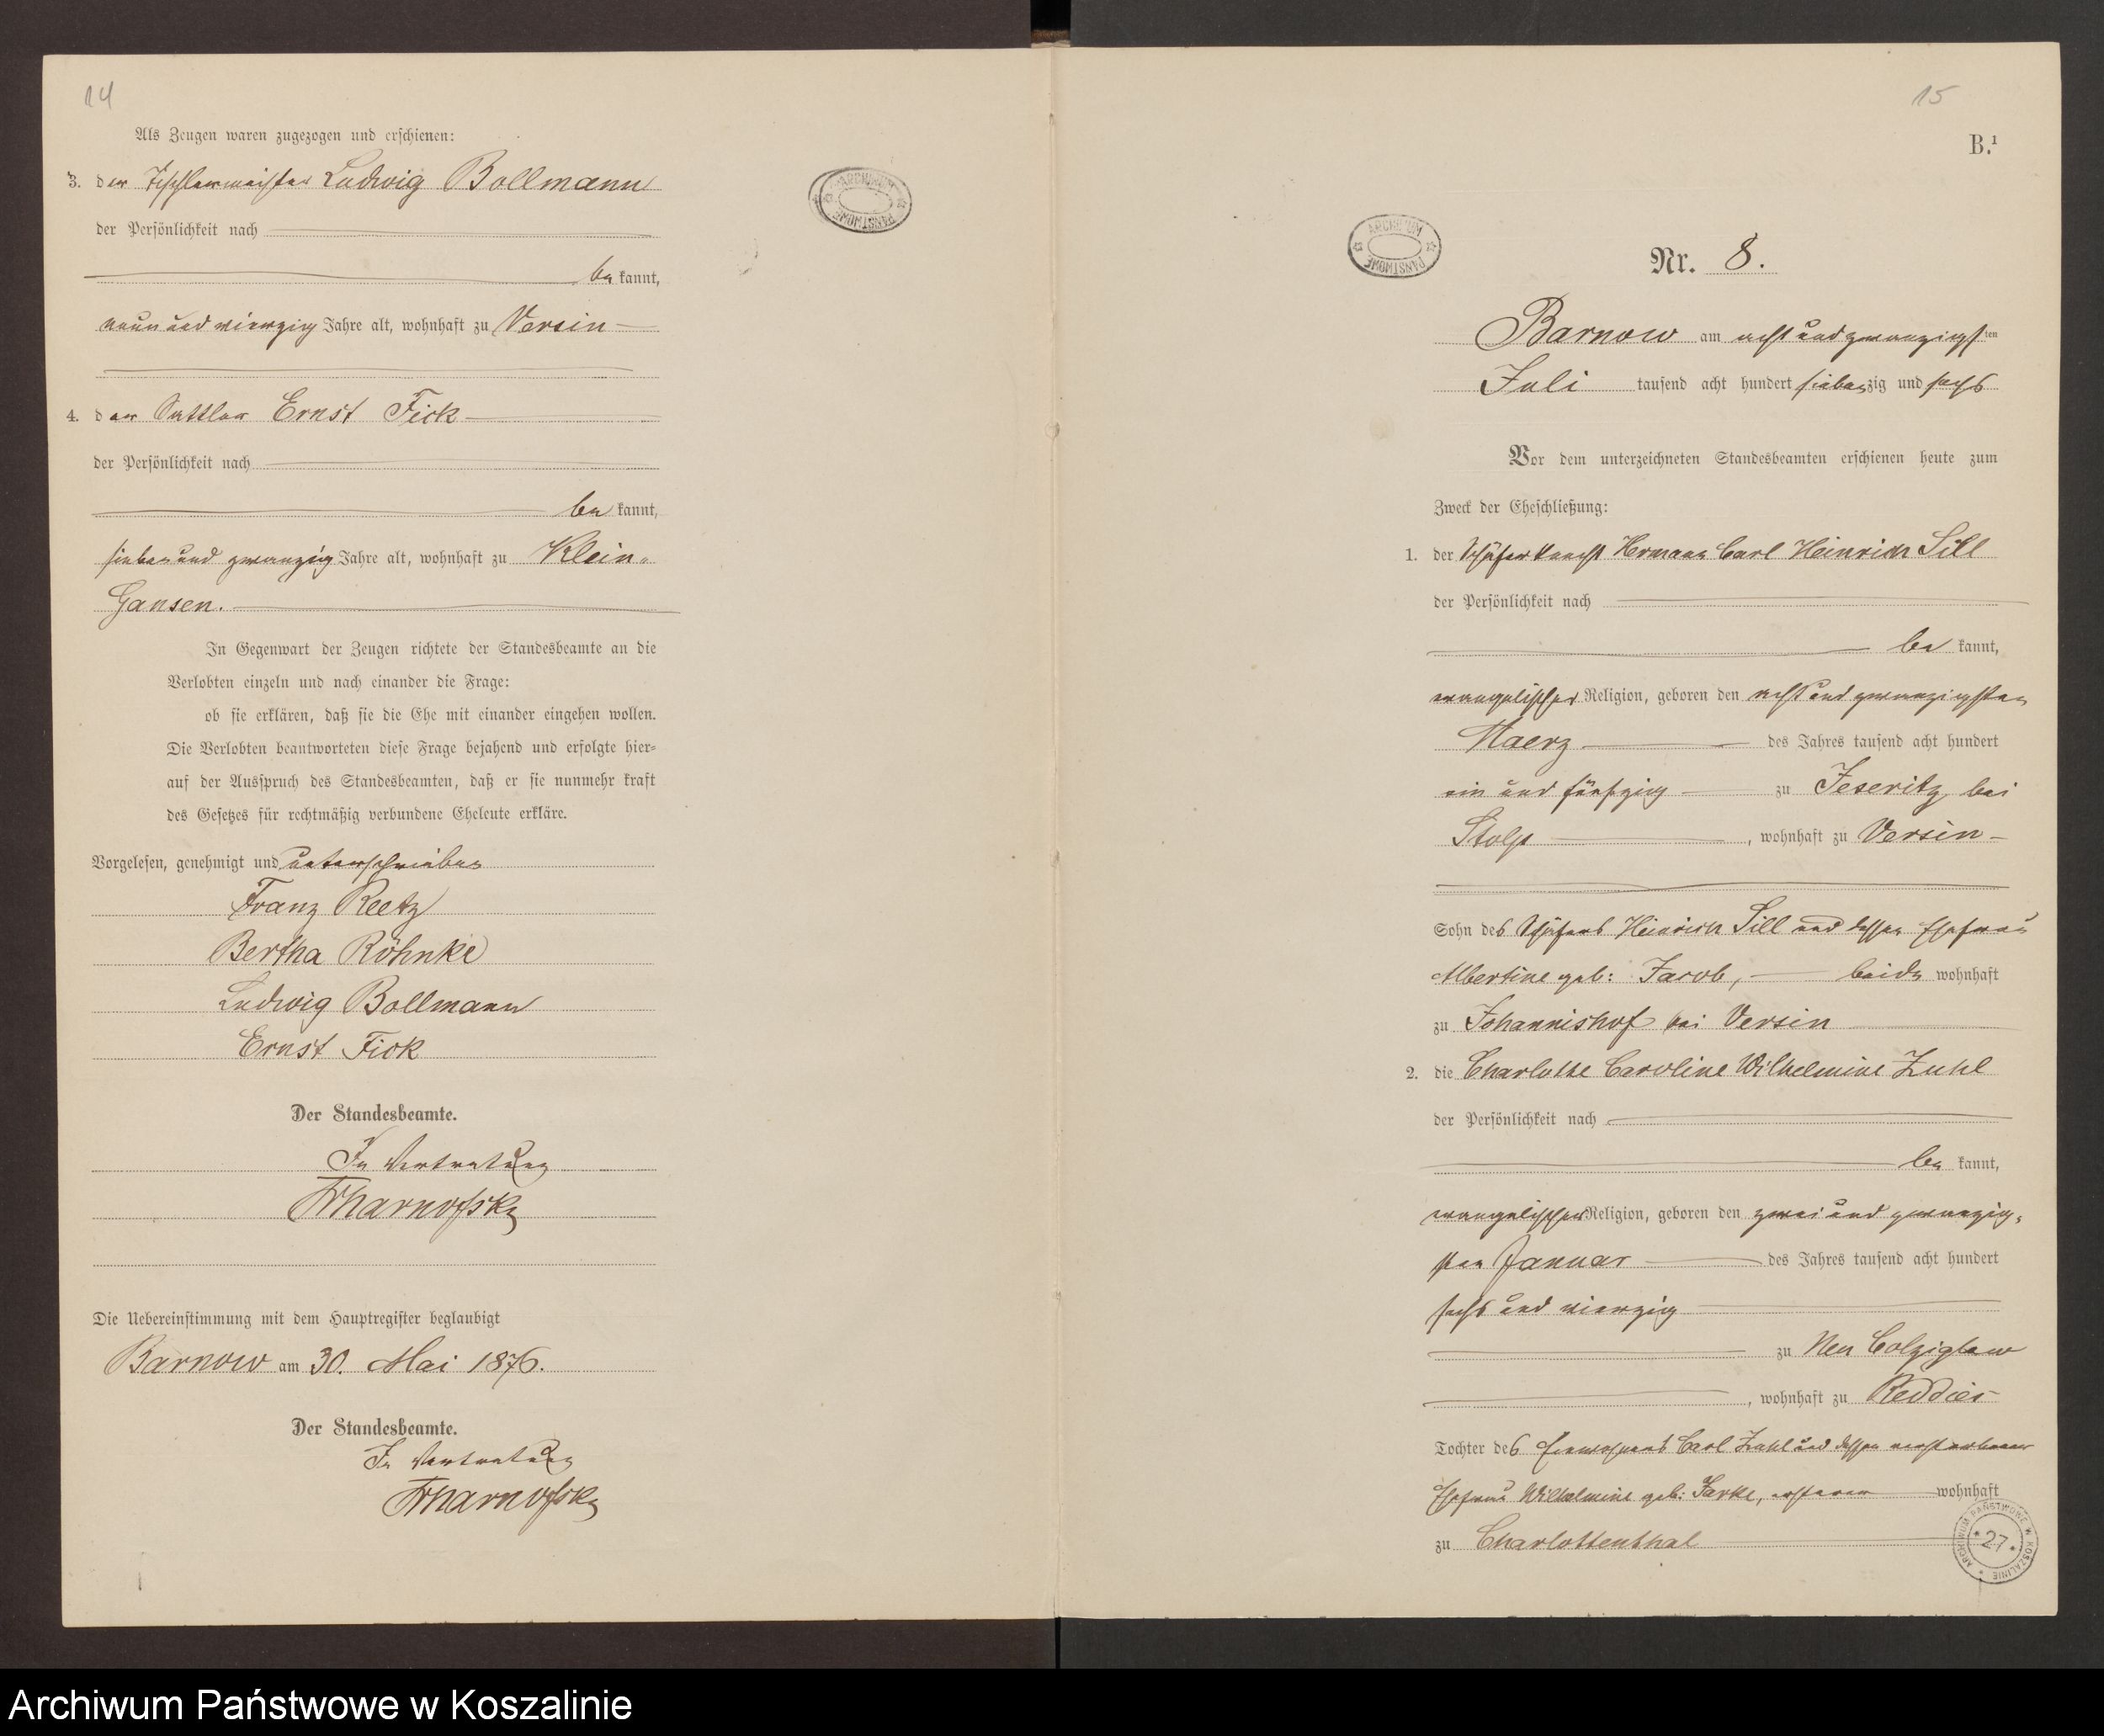 14
Als Zeugen waren zugezogen und erschienen:
3. der Tischlermeister Ludwig Bollmann
der Persönlichkeit nach
bekannt,
neun und vierzig Jahre alt, wohnhaft zu Versin
4. der Sattler Ernst Fick
der Persönlichkeit nach
bekannt,
sieben und zwanzig Jahre alt, wohnhaft zu Klein-
Gansen.
In Gegenwart der Zeugen richtete der Standesbeamte an die
Verlobten einzeln und nach einander die Frage:
ob sie erklären, daß sie die Ehe mit einander eingehen wollen.
Die Verlobten beantworteten diese Frage bejahend und erfolgte hier-
auf der Ausspruch des Standesbeamten, daß er sie nunmehr kraft
des Gesetzes für rechtmäßig verbundene Eheleute erkläre.
Vorgelesen, genehmigt und unterschrieben
Franz Reetz
Bertha Röhnke
Ludwig Bollmann
Ernst Fick
Der Standesbeamte.
In Vertretung
Die Uebereinstimmung mit dem Hauptregister beglaubigt
Barnow am 30. Mai 1876.
Der Standesbeamte.
In Vertretung
ARCHIWUM PAŃSTWOWE
15
B.1
ARCHIWUM PAŃSTWOWE
Nr. 8.
Barnow am acht und zwanzigsten
Juli tausend acht hundert siebenzig und sechs
Vor dem unterzeichneten Standesbeamten erschienen heute zum
Zweck der Eheschließung:
1. der Schäferknecht Hermann Carl Heinrich Sill
der Persönlichkeit nach
bekannt,
evangelischer Religion, geboren den acht und zwanzigsten
Maerz des Jahres tausend acht hundert
ein und fünfzig zu Jeseritz bei
Stolp, wohnhaft zu Versin
Sohn des Schäfers Heinrich Sill und dessen Ehefrau
Albertine geb: Jacob, beide wohnhaft
zu Johannishof bei Versin
2. die Charlotte Caroline Wilhelmine Zuhl
der Persönlichkeit nach
bekannt,
evangelischer Religion, geboren den zwei und zwanzig-
sten Januar des Jahres tausend acht hundert
sechs und vierzig
zu Neu Colziglow
, wohnhaft zu Reddies
Tochter des Einwohners Carl Zuhl und dessen verstorbenen
Ehefrau Wilhelmine geb: ersterer wohnhaft
zu Charlottenthal
ARCHIWUM PAŃSTWOWE W KOSZALINIE
27
Archiwum Państwowe w Koszalinie